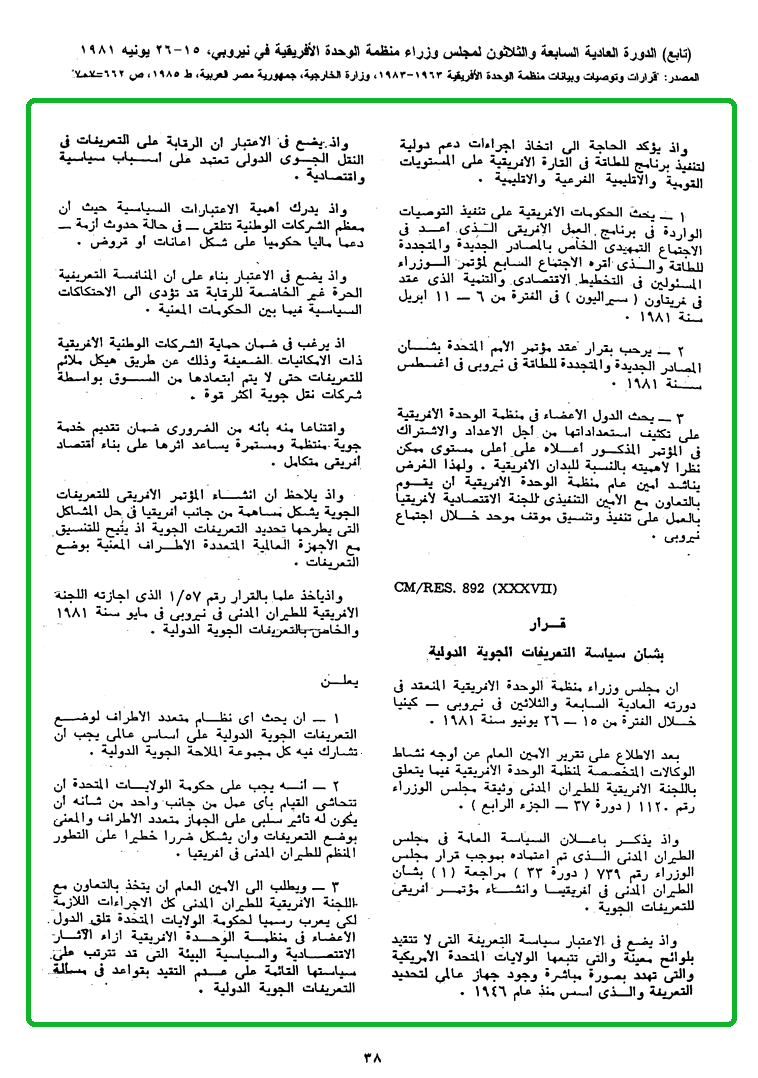 (تابع) الدورة العادية السابعة والثلاثون لمجلس وزراء منظمة الوحدة الأفريقية في نيروبي، ١٥-٢٦ يونيه ١٩٨١
المصدر: "قرارات وتوصيات وبيانات منظمة الوحدة الأفريقية ١٩٦٣-١٩٨٣، وزارة الخارجية، جمهورية مصر العربية، ط ١٩٨٥، ص ٦٦٢
واذ يؤكد الحاجة الى اتخاذ اجراءات دعم دولية
لتنفيذ برنامج للطاقة فى القارة الأفريقية على المستويات
القومية والاقليمية الفرعية والاقليمية .
١ — يحث الحكومات الأفريقية على تنفيذ التوصيات
الواردة فى برنامج العمل الأفريقى الـذى اعد فى
الاجتماع التمهيدى الخاص بالمصادر الجديدة والمتجددة
للطاقة والـذى أقره الاجتماع السابع لمؤتمر الـوزراء
المسئولين فى التخطيط الاقتصادى والتنمية الذى عقد
فى فريتاون ( سيراليون ) فى الفترة من ٦ — ١١ ابريل
سنة ١٩٨١ .
٢ — يرحب بقرار عقد مؤتمر الأمم المتحدة بشـان
المصادر الجديدة والمتجددة للطاقة فى نيروبى فى اغسطس
سـنة ١٩٨١ .
٣ — يحث الدول الأعضاء فى منظمة الوحدة الأفريقية
على تكثيف استعداداتها من أجل الاعداد والاشتراك
فى المؤتمر المذكـور أعـلاه على أعلى مستوى ممكن
نظرا لأهميته بالنسبة للبدان الأفريقية . ولهذا الغرض
يناشد أمين عام منظمة الوحدة الأفريقية أن يقـوم
بالتعاون مع الأمين التنفيذى للجنة الاقتصادية لأفريقيا
بالعمل على تنفيذ وتنسيق موقف موحد خـلال اجتماع
نيروبى .
CM/RES. 892 (XXXVII)
قـرار
بشان سياسة التعريفات الجوية الدولية
ان مجلس وزراء منظمة الوحدة الأفريقية المنعقد فى
دورته العادية السابعة والثلاثين فى نيروبى — كينيا
خـلال الفترة من ١٥ — ٢٦ يونيو سنة ١٩٨١ .
بعد الاطلاع على تقرير الأمين العام عن أوجه نشاط
الوكالات المتخصصة لمنظمة الوحدة الأفريقية فيما يتعلق
باللجنة الأفريقية للطيران المدنى وثيقة مجلس الوزراء
رقم ١١٢٠ ( دورة ٣٧ — الجزء الرابع ) .
واذ يذكـر باعـلان السياسة العامة فى مجلس
الطيران المدنى الـذى تم اعتماده بموجب قرار مجلس
الوزراء رقم ٧٣٩ ( دورة ٣٣ ) مراجعة (١) بشأن
الطيران المدنى فى أفريقيـا وانشـاء مؤتمـر أفريقى
للتعريفات الجوية .
واذ يضع فى الاعتبار سياسة التعريفة التى لا تتقيد
بلوائح معينة والتى تتبعها الولايات المتحدة الأمريكية
والتى تهدد بصورة مباشرة وجود جهاز عالمى لتحديد
التعريفة والـذى أسس منذ عام ١٩٤٦ .
واذ يضع فى الاعتبار ان الرقابة على التعريفات فى
النقل الجـوى الدولى تعتمد على أسـباب سياسية
واقتصادية .
واذ يدرك أهمية الاعتبارات السياسية حيث ان
معظم الشركات الوطنية تتلقى — فى حالة حدوث أزمة —
دعما ماليا حكوميا على شـكل اعانات أو قروض .
واذ يضع فى الاعتبار بناء على ان المنافسة التعريفية
الحرة غير الخاضعة للرقابة قد تؤدى الى الاحتكاكات
السياسية فيما بين الحكومات المعنية .
اذ يرغب فى ضمان حماية الشركات الوطنية الأفريقية
ذات الامكانيات الضعيفة وذلك عن طريق هيكل ملائم
للتعريفات حتى لا يتم ابتعادها من السـوق بواسطة
شركات نقل جوية اكثر قوة .
واقتناعا منه بأنه من الضرورى ضمان تقديم خدمة
جوية منتظمة ومستمرة يساعد أثرها على بناء اقتصاد
أفريقى متكامل .
واذ يلاحظ أن انشـاء المؤتمر الأفريقى للتعريفات
الجوية يشكل مساهمة من جانب أفريقيا فى حل المشاكل
التى يطرحها تحديد التعريفات الجوية اذ يتيح للتنسيق
مع الأجهزة العالمية المتعددة الأطـراف المعنية بوضع
التعريفات .
واذياخذ علما بالقرار رقم ١/٥٧ الذى اجازته اللجنة
الأفريقية للطيران المدنى فى نيروبى فى مايو سنة ١٩٨١
والخاص بالتعريفات الجوية الدولية .
يعلـن
١ — ان بحث أى نظـام متعدد الأطراف لوضـع
التعريفات الجوية الدولية على أساس عالمى يجب أن
تشارك فيه كل مجموعة الملاحة الجوية الدولية .
٢ — أنـه يجب على حكومة الولايـات المتحدة ان
تتحاشى القيام بأى عمل من جانب واحد من شـانه أن
يكون له تأثير سلبى على الجهاز متعدد الأطراف والمعنى
بوضع التعريفات وان يشكل ضررا خطيرا على التطور
المنظم للطيران المدنى فى أفريقيا .
٣ — ويطلب الى الأمين العام أن يتخذ بالتعاون مع
اللجنة الأفريقية للطيران المدنى كل الاجراءات اللازمة
لكى يعرب رسميا لحكومة الولايات المتحدة قلق الدول
الأعضاء فى منظمـة الوحـدة الأفريقية ازاء الآثـار
الاقتصـادية والسياسية البيئة التى قد تترتب على
سياستها القائمة على عـدم التقيد بقواعد فى مسألة
التعريفات الجوية الدولية .
٣٨